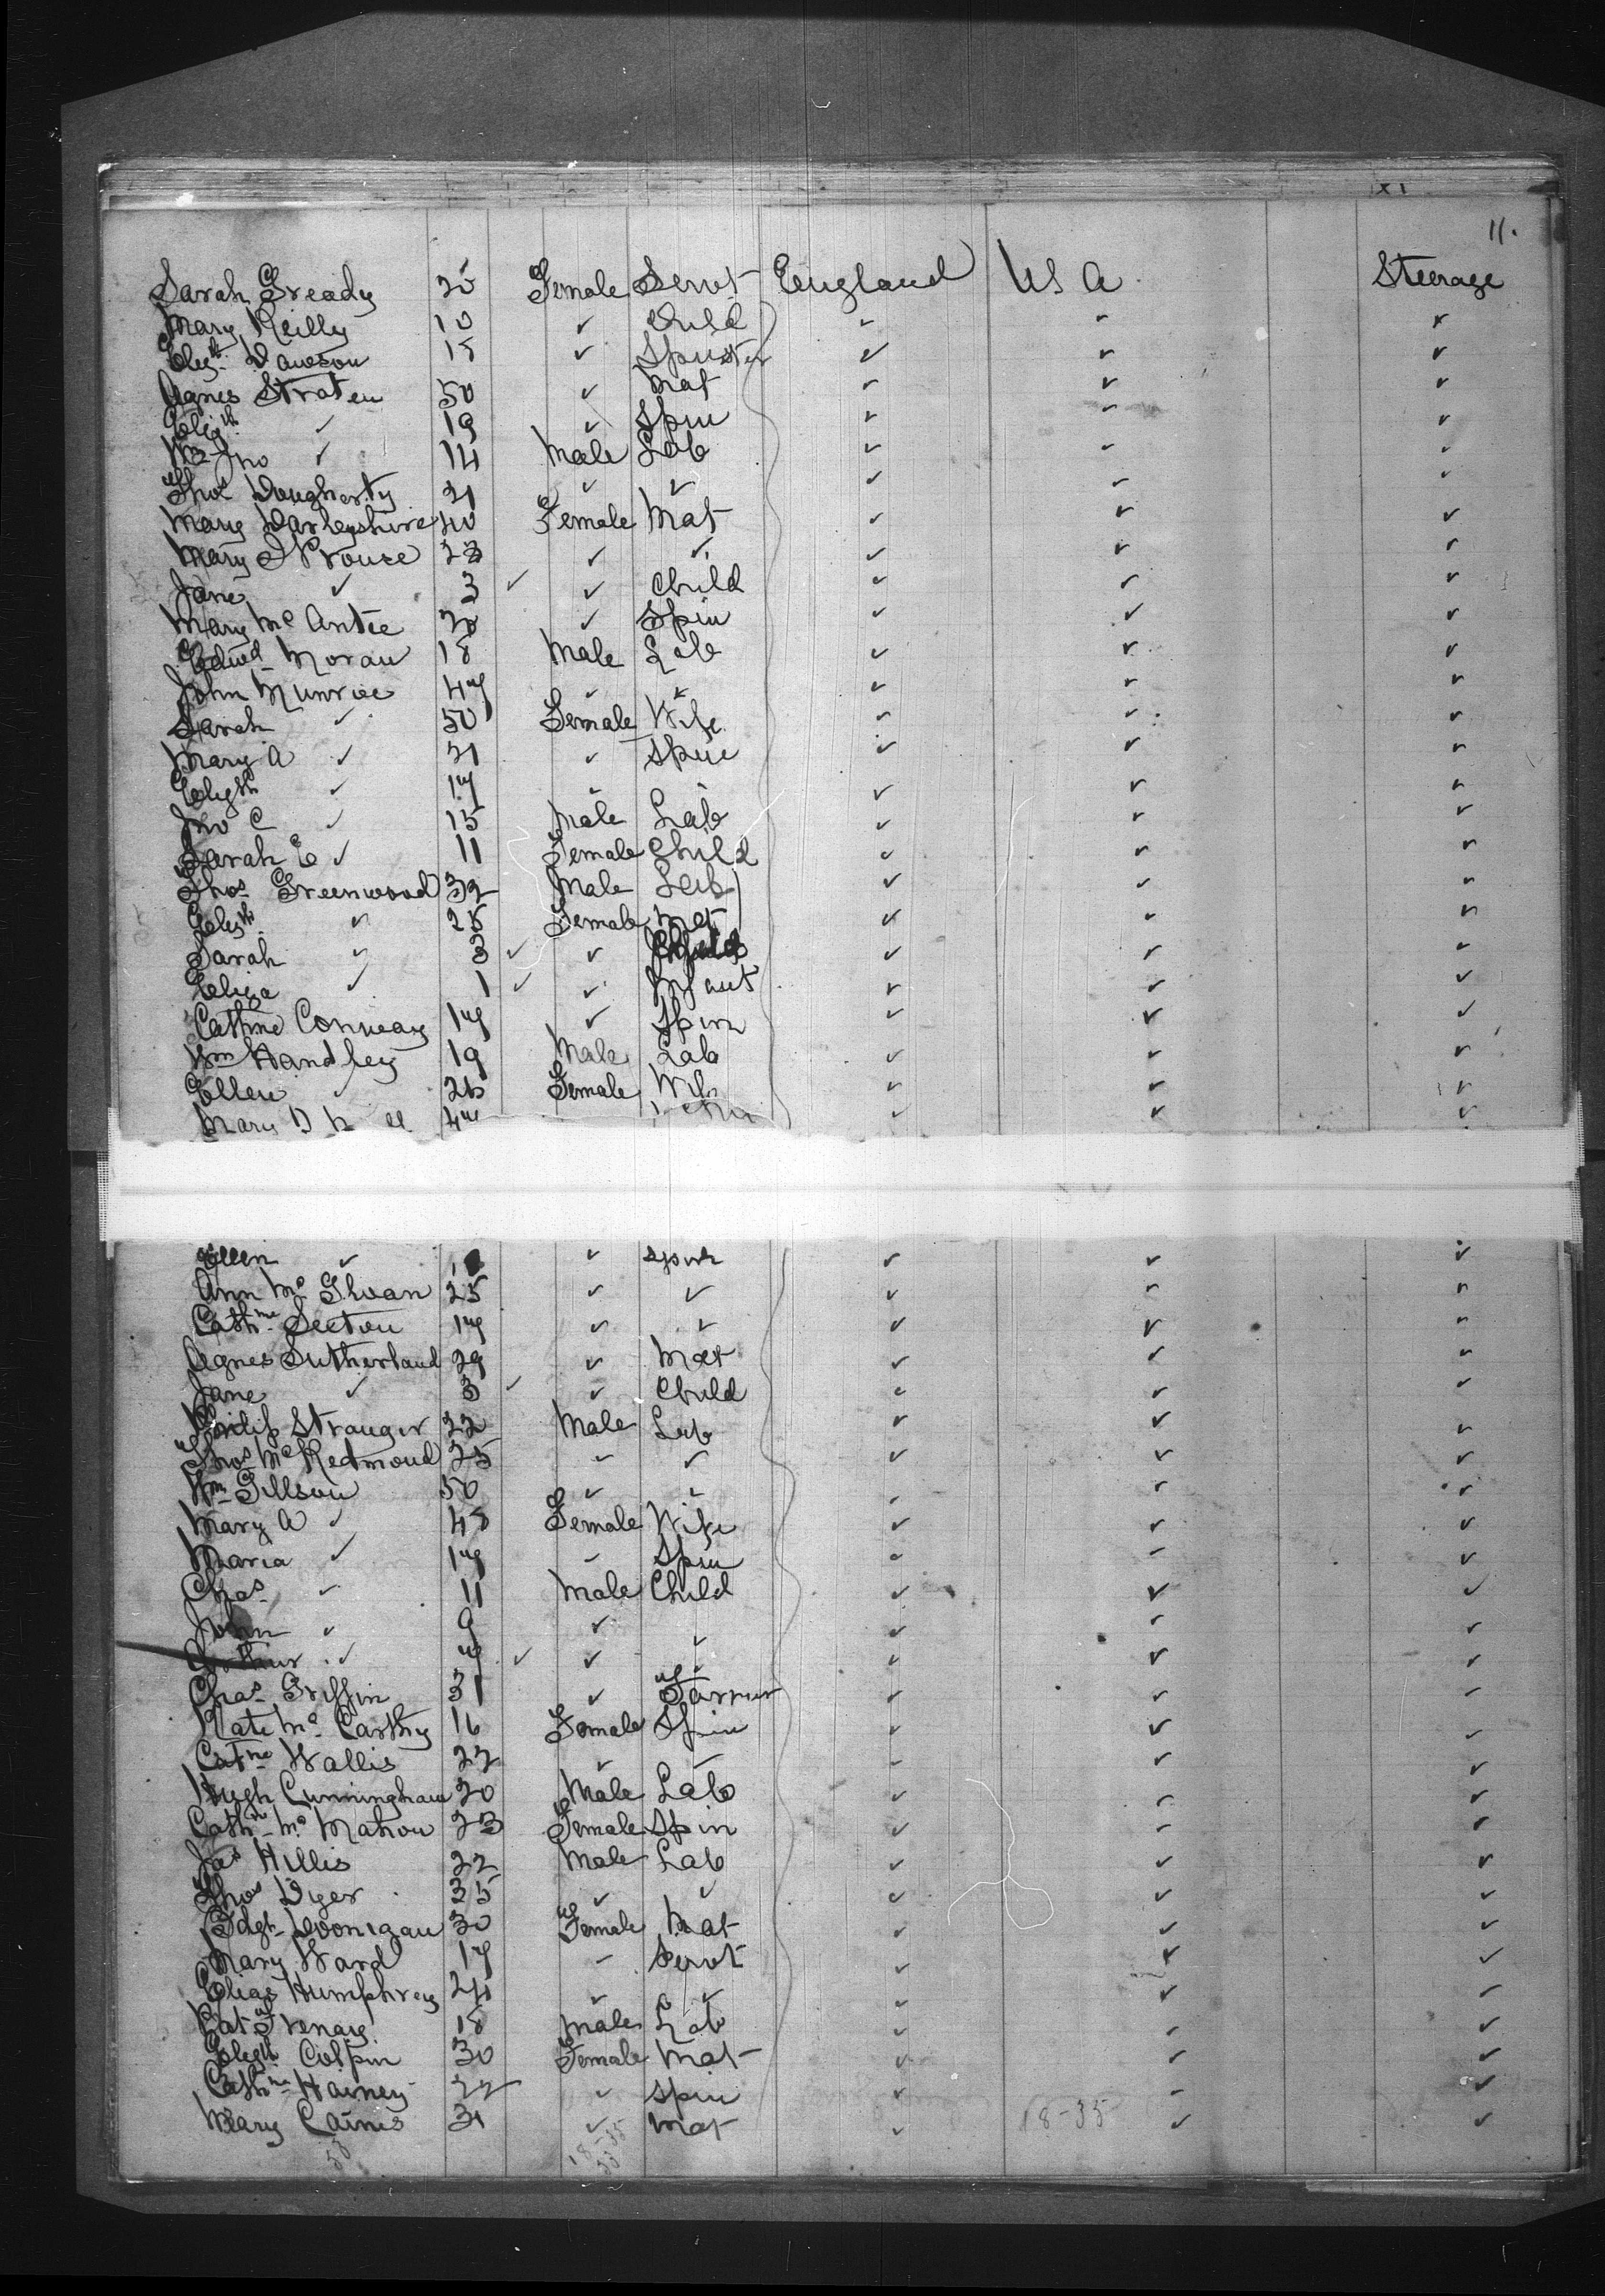 11.
Sarah Gready 20 Female Servt England US A Steerage
Mary Reilly 10 ✓ Child ✓ ✓ ✓
Elizth Dawson 18 ✓ Spinster ✓ ✓ ✓
Agnes Straten 50 ✓ Mat ✓ ✓ ✓
Elizth ✓ 19 ✓ Spin ✓ ✓ ✓
Wm Jno ✓ 14 Male Lab ✓ ✓ ✓
Thos Dougherty 21 ✓ ✓ ✓ ✓ ✓
Mary Darleyshire 40 Female Mat ✓ ✓ ✓
Mary J Prouse 28 ✓ ✓ ✓ ✓ ✓
Jane ✓ 3 ✓ ✓ Child ✓ ✓ ✓
Mary Mc Antee 20 ✓ Spin ✓ ✓ ✓
Edwd Moran 18 Male Lab ✓ ✓ ✓
John Munroe 47 ✓ ✓ ✓ ✓ ✓
Sarah ✓ 50 Female Wife ✓ ✓ ✓
Mary A ✓ 21 ✓ Spin ✓ ✓ ✓
Elizth ✓ 17 ✓ ✓ ✓ ✓
Jno C ✓ 15 Male Lab ✓ ✓ ✓
Sarah E ✓ 11 Female Child ✓ ✓ ✓
Thos Greenwood 32 Male Lab ✓ ✓ ✓
Elizth ✓ 28 Female Mat ✓ ✓ ✓
Sarah ✓ 3 ✓ ✓ Child ✓ ✓ ✓
Eliza ✓ 1 ✓ ✓ Infant ✓ ✓ ✓
Cathne Conway 17 ✓ Spin ✓ ✓ ✓
Wm Handley 19 Male Lab ✓ ✓ ✓
Ellen ✓ 26 Female Wife ✓ ✓ ✓
Mary 47 ✓ ✓ ✓
Ellen ✓ ✓ Spin ✓ ✓ ✓
Ann Mc Ilvean 25 ✓ ✓ ✓ ✓ ✓
Cathne Seeton 17 ✓ ✓ ✓ ✓ ✓
Agnes Sutherland 29 ✓ Mat ✓ ✓ ✓
Jane ✓ 3 ✓ ✓ Child ✓ ✓ ✓
Philip Stranger 22 Male Lab ✓ ✓ ✓
Thos Mc Redmond 25 ✓ ✓ ✓ ✓ ✓
Wm Gillson 50 ✓ ✓ ✓ ✓ ✓
Mary A ✓ 48 Female Wife ✓ ✓ ✓
Maria ✓ 17 ✓ Spin ✓ ✓ ✓
Chas ✓ 11 Male Child ✓ ✓ ✓
John ✓ 9 ✓ ✓ ✓ ✓
Arthur ✓ 7 ✓ ✓ ✓ ✓ ✓ ✓
Chas Griffin 31 ✓ Farmer ✓ ✓ ✓
Kate Mc Carthy 16 Female Spin ✓ ✓ ✓
Catne Wallis 22 ✓ ✓ ✓ ✓ ✓
Hugh Cunningham 20 Male Lab ✓ ✓ ✓
Cathne Mc Mahon 23 Female Spin ✓ ✓ ✓
Jas Hillis 22 Male Lab ✓ ✓ ✓
Thos Dyer 35 ✓ ✓ ✓ ✓ ✓
Bdgt Doonigan 30 Female Mat ✓ ✓ ✓
Mary Ward 17 ✓ Servt ✓ ✓ ✓
Elias Humphrey 24 ✓ ✓ ✓ ✓ ✓
Pat Frenay 18 Male Lab ✓ ✓ ✓
Elizth Colpin 30 Female Mat ✓ ✓ ✓
Cathne Hainey 22 ✓ Spin ✓ ✓ ✓
Mary Cairns 31 ✓ Mat ✓ ✓ ✓
18-35